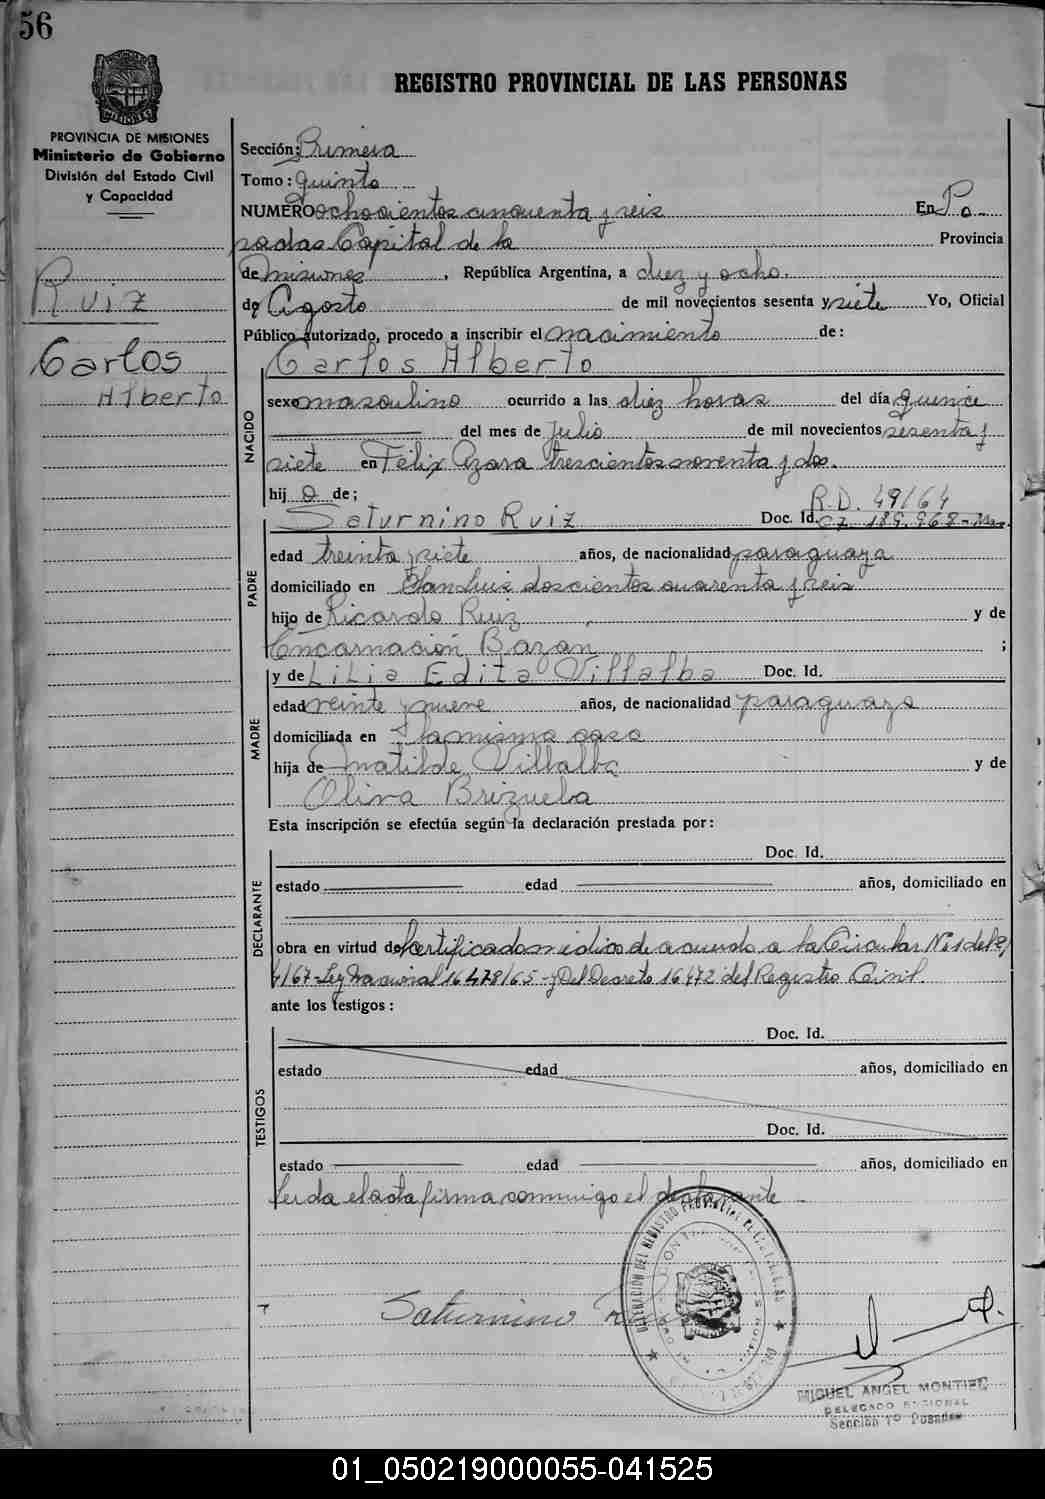 56
REGISTRO PROVINCIAL DE LAS PERSONAS
PROVINCIA DE MISIONES
Ministerio de Gobierno
División del Estado Civil
y Capacidad
Ruiz
Carlos
Alberto
Sección: Primera
Tomo: quinto
NUMERO ochocientos cincuenta y seis En Po
sadas Capital de la Provincia
de Misiones, República Argentina, a diez y ocho.
de Agosto de mil novecientos sesenta y siete Yo, Oficial
Público autorizado, procedo a inscribir el nacimiento de:
Carlos Alberto
NACIDO
sexo masculino ocurrido a las diez horas del día quince
del mes de Julio de mil novecientos sesenta y
siete en Félix Azara trescientos noventa y dos.
hij o de;
R.D. 49/64
Saturnino Ruiz Doc. Id. CZ. 189.968-
PADRE
edad treinta y siete años, de nacionalidad paraguaya
domiciliado en San Luis doscientos cuarenta y seis
hijo de Ricardo Ruiz y de
Encarnación Bazan ;
y de Lilia Edita Villalba Doc. Id.
MADRE
edad veinte y nueve años, de nacionalidad paraguaya
domiciliada en la misma casa
hija de Matilde Villalba y de
Oliva Brizuela
Esta inscripción se efectúa según la declaración prestada por:
DECLARANTE
Doc. Id.
estado edad años, domiciliado en
obra en virtud de certificado médico de acuerdo a la Circular No 1 del 2/
1/67-Ley Nacional 16478/65 - y Del Decreto 16472 del Registro Civil.
ante los testigos:
TESTIGOS
Doc. Id.
estado edad años, domiciliado en
Doc. Id.
estado edad años, domiciliado en
leida el acta firma conmigo el declarante
Saturnino Ruiz
MIGUEL ANGEL MONTIEL
DELEGADO REGIONAL
Sección 1º Posadas
01_050219000055-041525